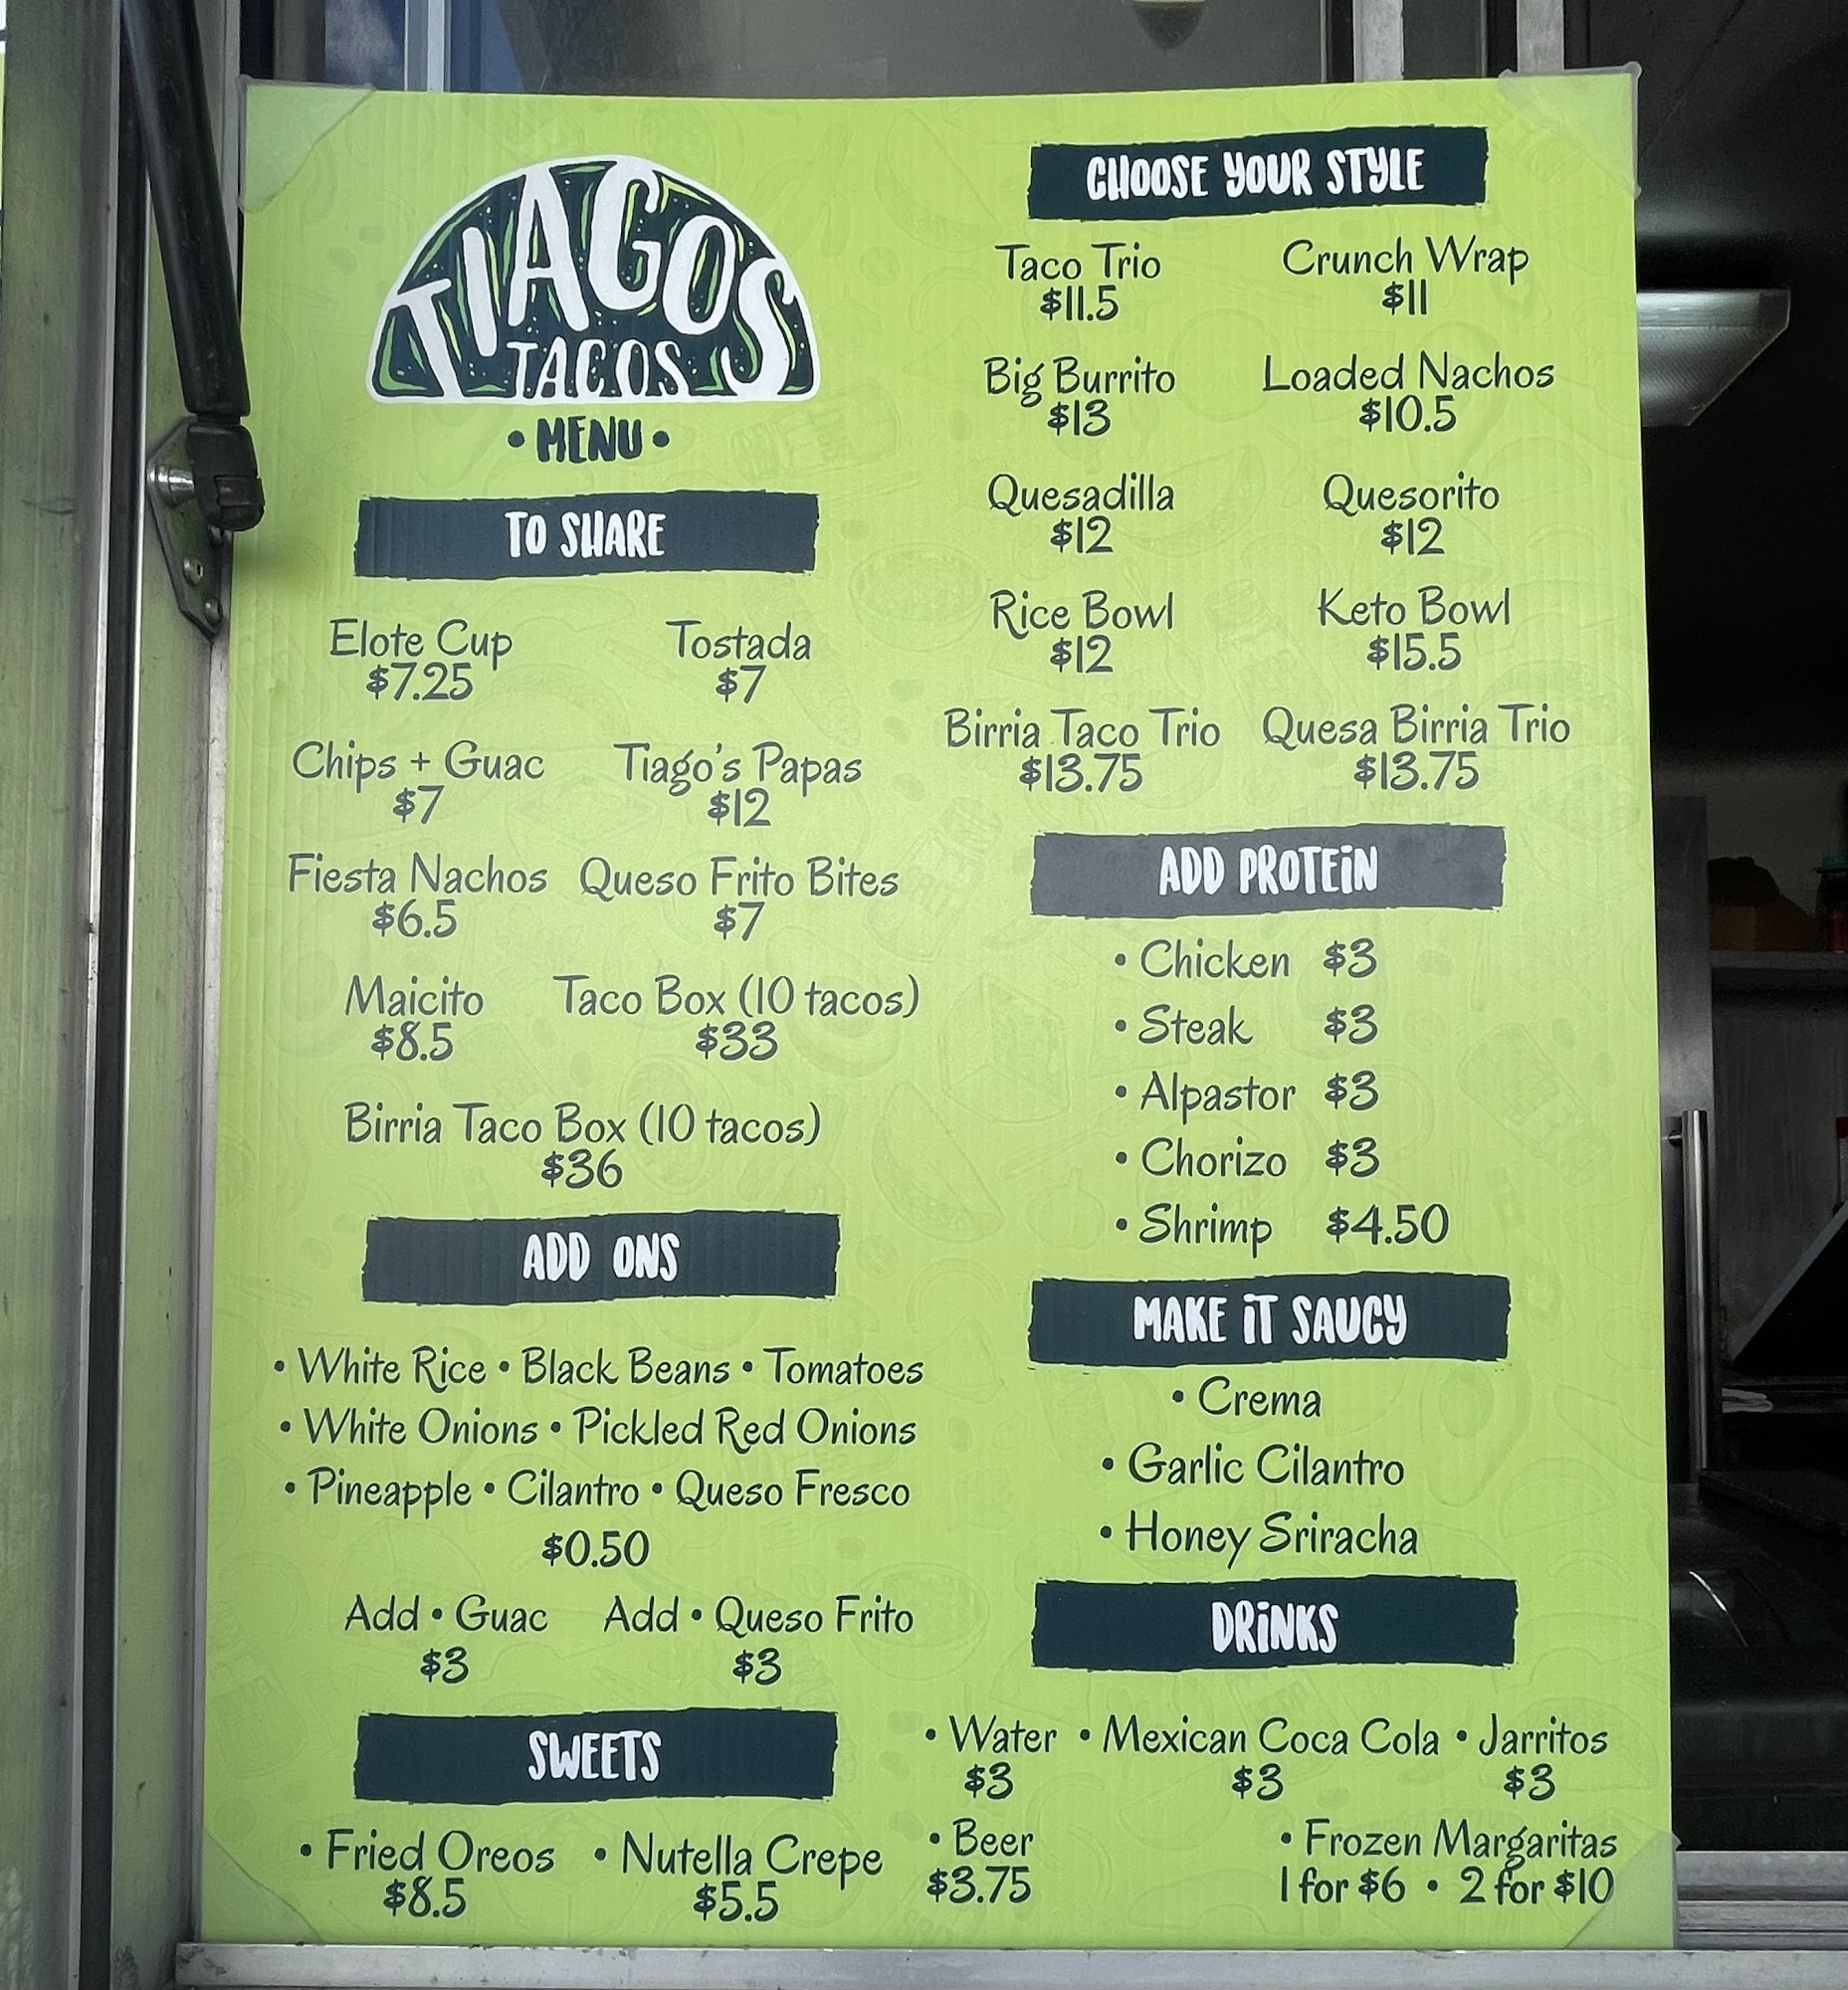 TIAGOS
TACOS
• MENU •
TO SHARE
Elote Cup
$7.25
Tostada
$7
Chips + Guac
$7
Tiago's Papas
$12
Fiesta Nachos
$6.5
Queso Frito Bites
$7
Maicito
$8.5
Taco Box (10 tacos)
$33
Birria Taco Box (10 tacos)
$36
ADD ONS
• White Rice • Black Beans • Tomatoes
• White Onions • Pickled Red Onions
• Pineapple • Cilantro • Queso Fresco
$0.50
Add • Guac
$3
Add • Queso Frito
$3
SWEETS
• Fried Oreos
$8.5
• Nutella Crepe
$5.5
CHOOSE YOUR STYLE
Taco Trio
$11.5
Crunch Wrap
$11
Big Burrito
$13
Loaded Nachos
$10.5
Quesadilla
$12
Quesorito
$12
Rice Bowl
$12
Keto Bowl
$15.5
Birria Taco Trio
$13.75
Quesa Birria Trio
$13.75
ADD PROTEIN
• Chicken $3
• Steak $3
• Alpastor $3
• Chorizo $3
• Shrimp $4.50
MAKE IT SAUCY
• Crema
• Garlic Cilantro
• Honey Sriracha
DRINKS
• Water
$3
• Mexican Coca Cola
$3
• Jarritos
$3
• Beer
$3.75
• Frozen Margaritas
1 for $6 • 2 for $10